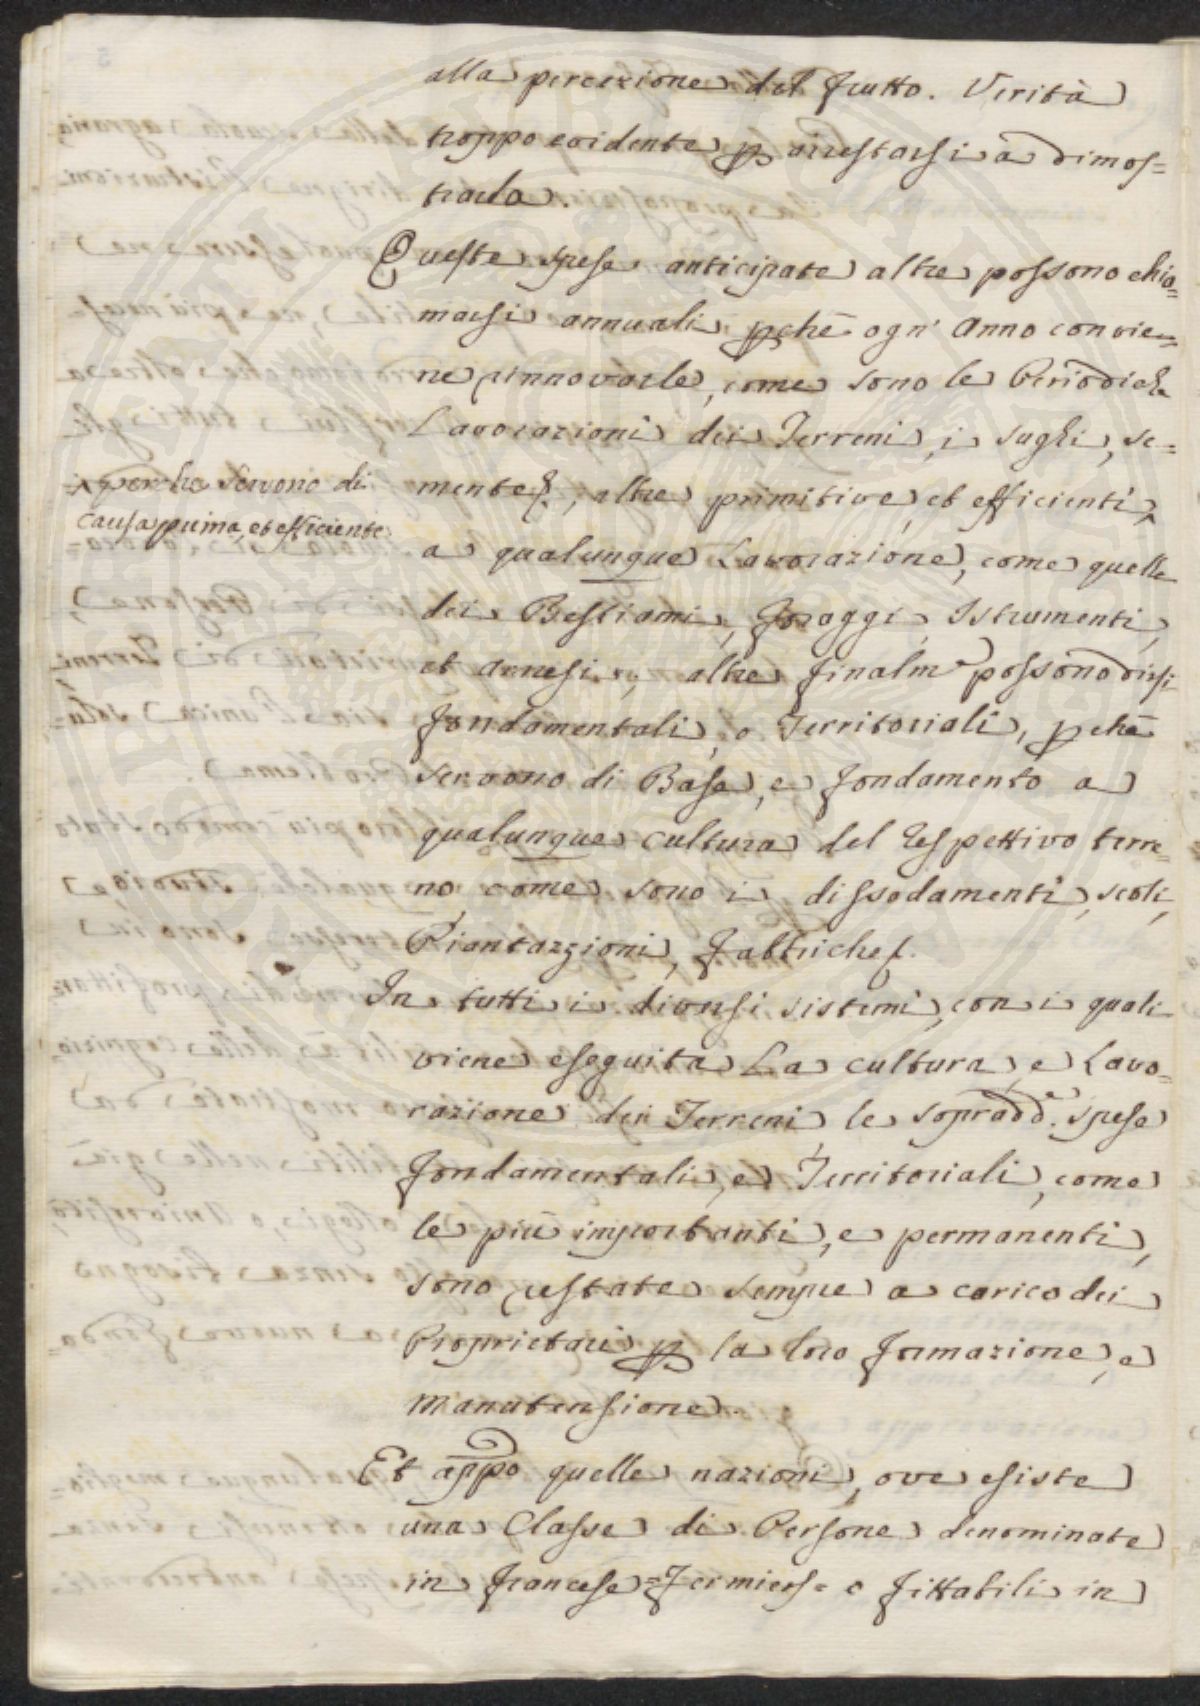 alla percezione del frutto. Verità
troppo evidente p arrestarsi a dimos=
trarla.
Queste spese anticipate altre possono chia=
marsi annuali, pchè ogn' Anno convie=
ne rinnovarle, come sono le Periodiche
Lavorazioni dei Terreni, i sughi, se=
mente &, altre primitive, et efficienti,
perche servono di
causa prima, et efficiente
a qualunque Lavorazione, come quelle
dei Bestiami, foraggi, Istrumenti,
et Arnesi, altre finalm.e possono dirsi
fondamentali, o Territoriali, pchè
servono di Base, e fondamento a
qualunque cultura del respettivo terre=
no come sono i dissodamenti, scoli,
Piantazzioni, fabbriche &.
In tutti i diversi sistemi, con i quali
viene eseguita La cultura, e Lavo=
razione dei Terreni, le sopradd.e spese
fondamentali, e Territoriali, come
le più importanti, e permanenti,
sono restate sempre a carico dei
Proprietari p la loro formazione, e
manutensione.
Et appo quelle nazioni, ove esiste
una Classe di Persone denominate
in francese =Fermiers= o fittabili in